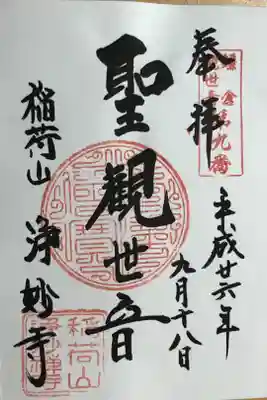 奉拝
鎌倉第九番
平成廿六年
九月十八日
聖観世音
稲荷山
浄妙寺
稲荷山